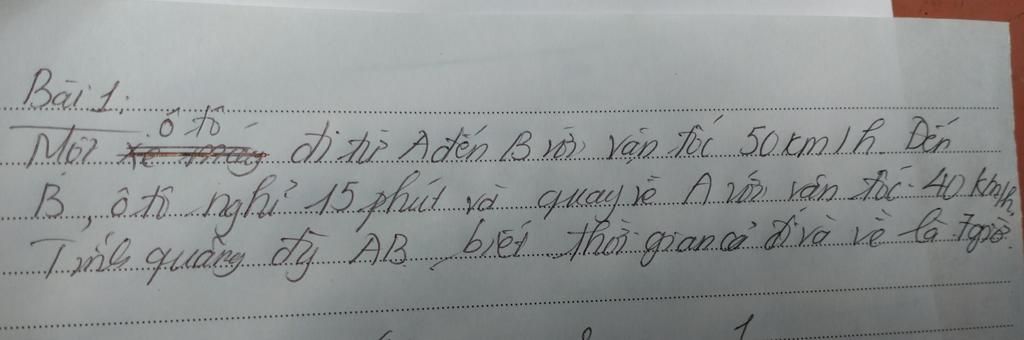 Bài 1:
ô tô
Một xe máy đi từ A đến B với vận tốc 50 km/h. Đến
B, ô tô nghỉ 15 phút và quay về A với vận tốc 40 km/h,
Tính quãng đg AB biết thời gian cả đi và về là 7 giờ.
1